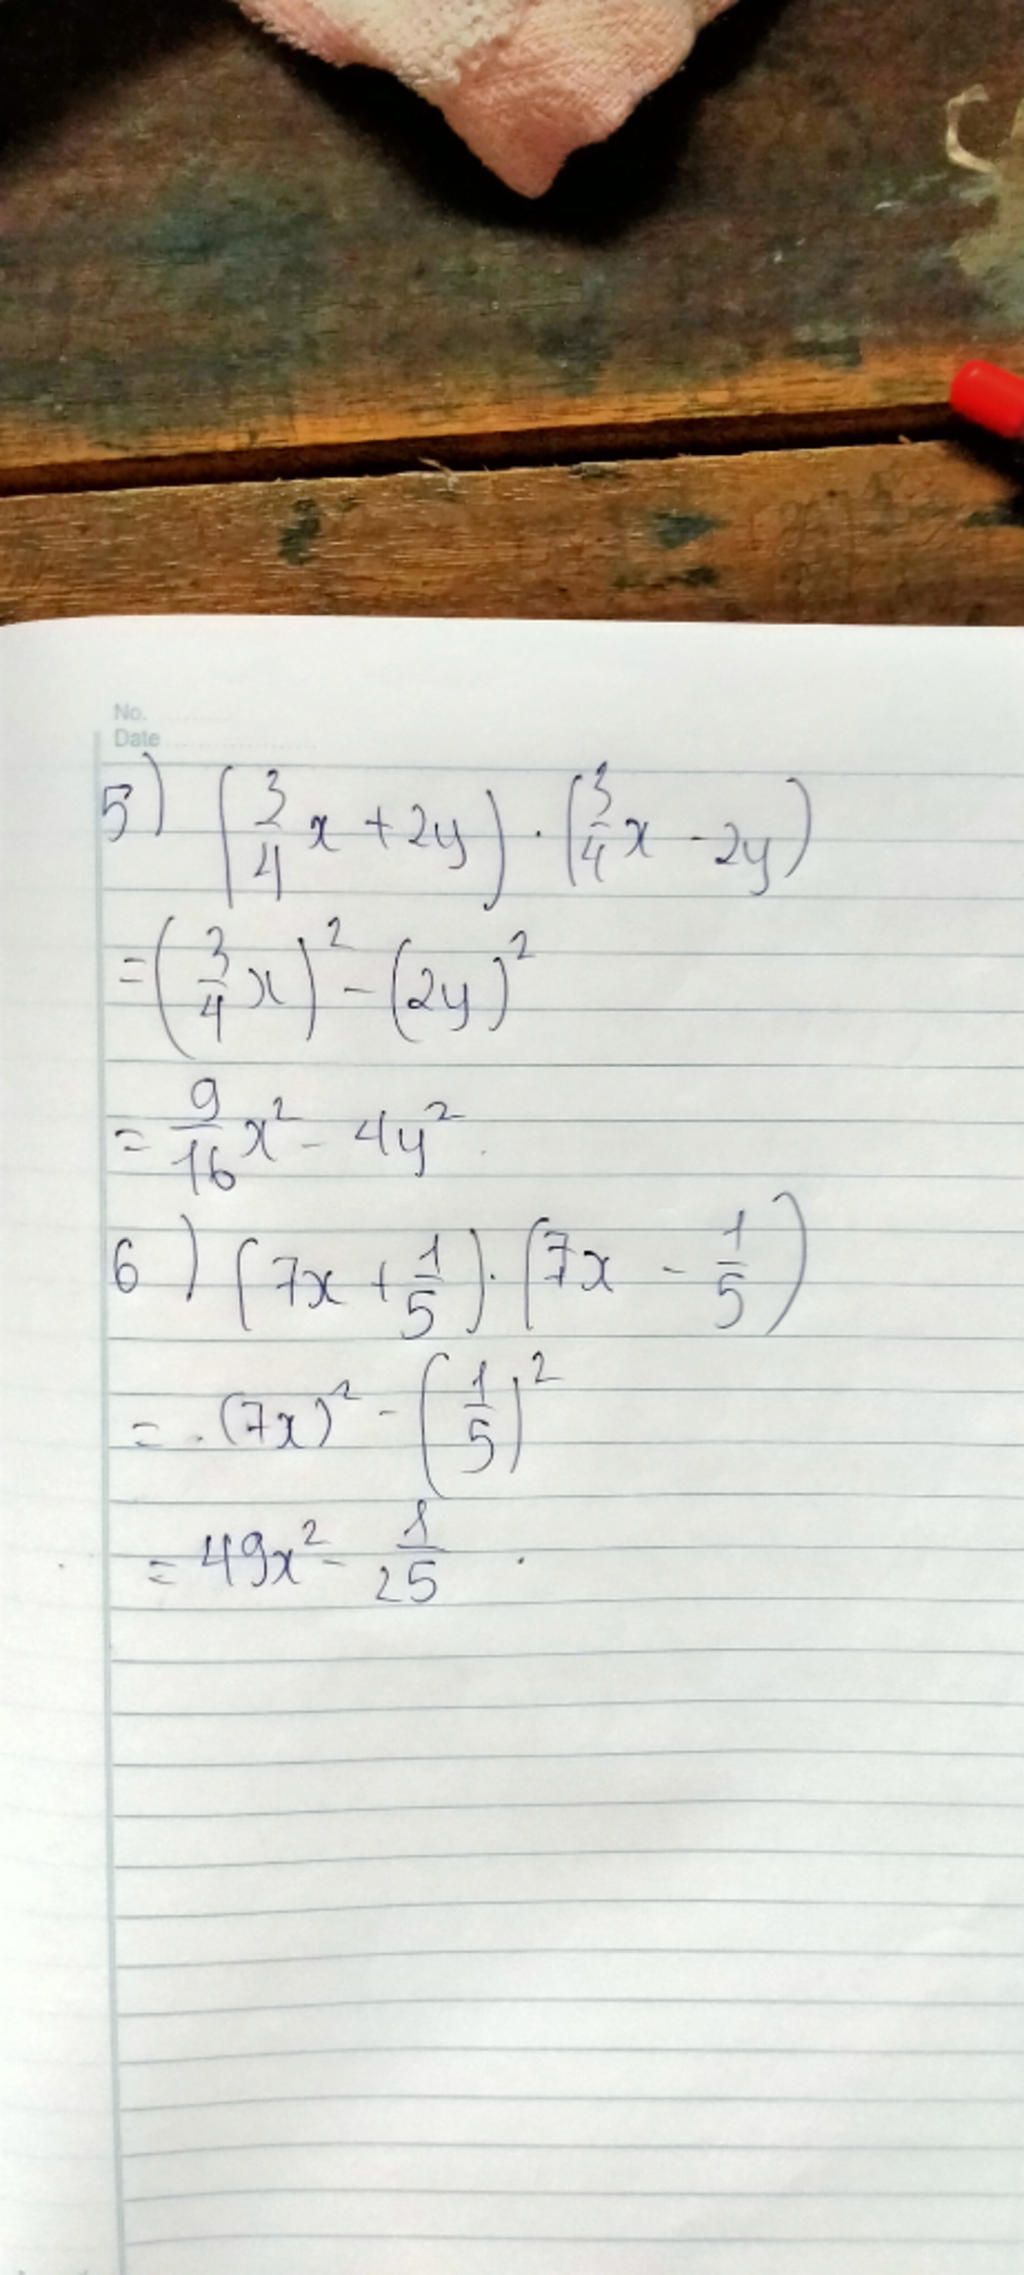 No.
Date
5) (3/4 x + 2y) . (3/4 x - 2y)
= (3/4 x)² - (2y)²
= 9/16 x² - 4y².
6) (7x + 1/5) . (7x - 1/5)
= . (7x)² - (1/5)²
= 49x² - 1/25 .